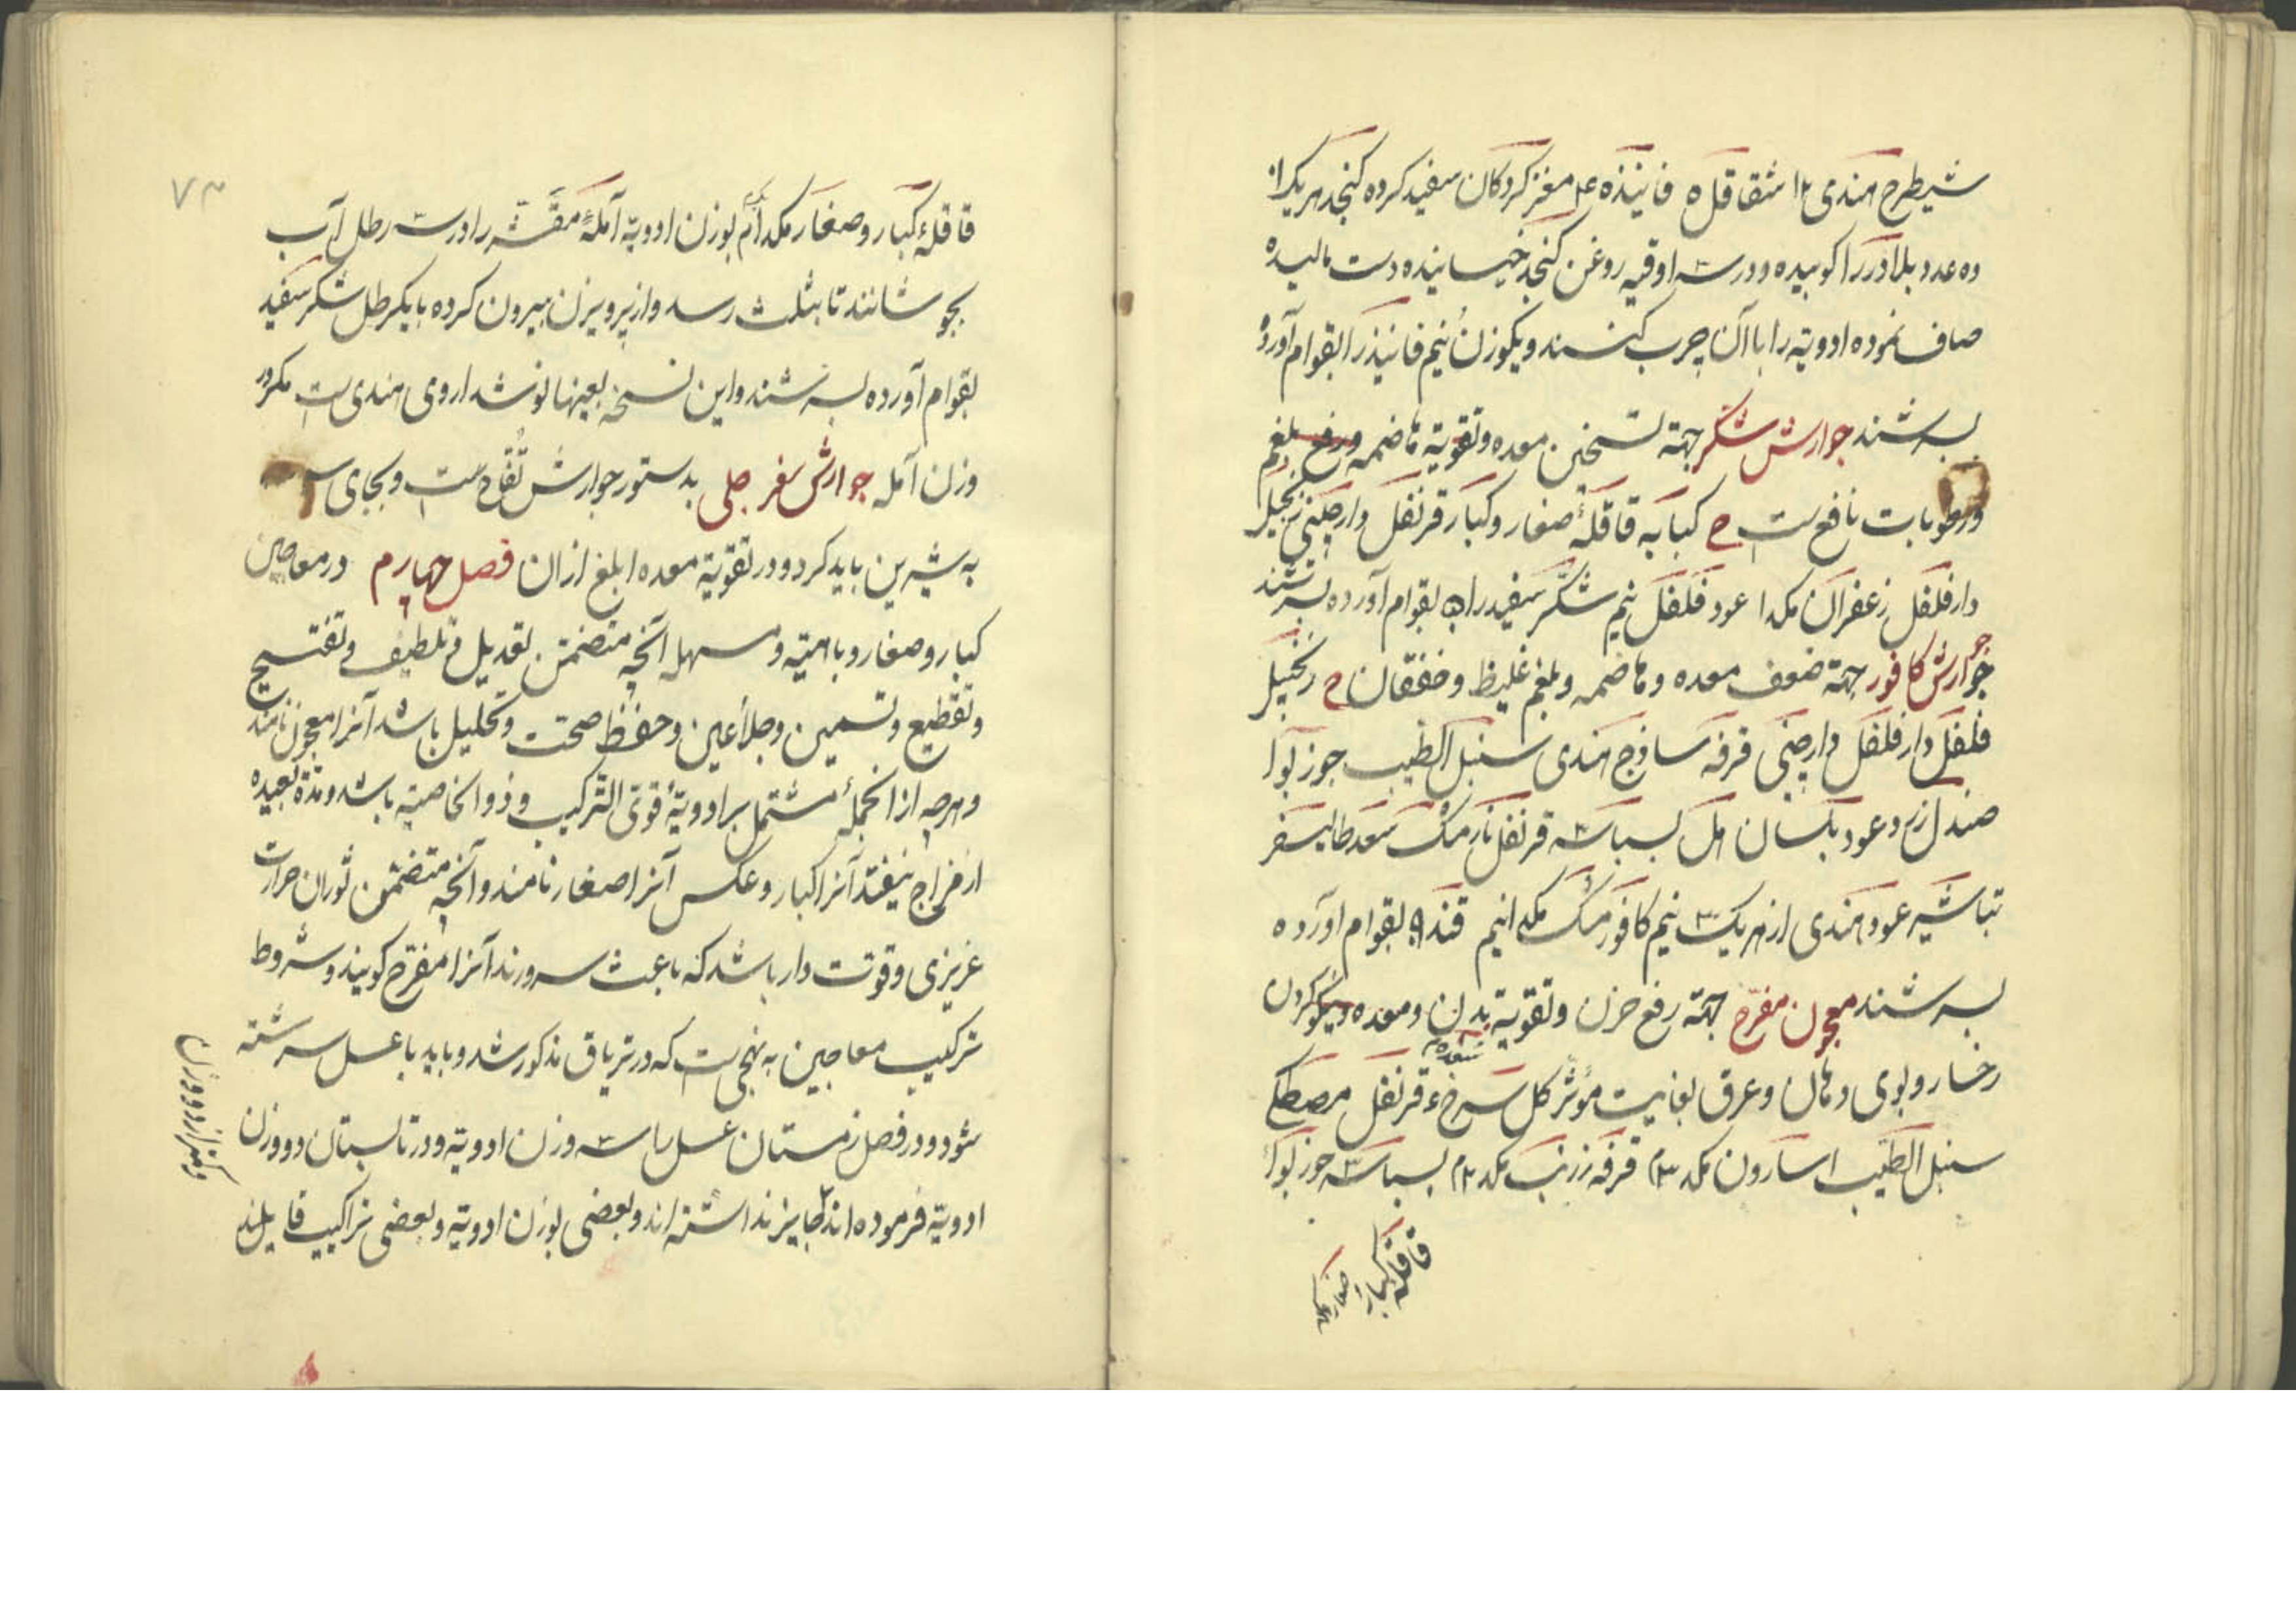 شیطرج هندی ۱۲ شقاقل ۵ فانیذه مغز کردکان سفید کرده کنجد هریک را
ده عدد بلادر را کوبیده و در سه اوقیه روغن کنجد خیسانیده دست مالیده
صاف نموده ادویته را با آن چرب کنند و یکوزن نیم فانیذ را بقوام آورده
بسرشند جوارش شکر جهته تسخین معده و تقویته هاضمه و رفع بلغم
و رطوبات نافع ست ح کبابه قاقلهٔ صغار و کبار قرنفل دارچینی زنجبیل
دارفلفل زعفران مکد ا عود فلفل نیم شکر سفید را بقوام آورده بسرشند
جوارش کافور جهته ضعف معده و هاضمه و بلغم غلیظ و خفقان ح زنجبیل
فلفل دارفلفل دارچینی قرفه ساذج هندی سنبل الطیب جوز بوا
صندل زرد عود بلسان هل بسباسه قرنفل نارمشک سعد طالیسفر
تباشیر عود هندی از هریک ۳ نیم کافور مشک مکد انیم قند بقوام اورده
بسرشند معجون مفرح جهته رفع حزن و تقویته بدن و معده و نیکو کردن
رخسار و بوی دهان و عرق بغایت مؤثر کل سرخ سعد قرنفل مصطکی
سنبل الطیب اسارون مکد ۳م قرفه زرنب مکد ۲م بسباسه جوز بوا
قاقله کبار صغار مکد
۷۳
قاقلهٔ کبار و صغار مکد ام بوزن ادویته آملهٔ مقشر را در سه رطل آب
بجوشانند تا بثلث رسد و از پرویزن بیرون کرده با یکرطل شکر سفید
بقوام آورده بسرشند و این نسخه بعینها نوشداروی هندی ست مکرر
وزن آمله جوارش سفرجلی بدستور جوارش تفاح ست و بجای سیب
به شیرین باید کرد و در تقویته معده ابلغ ازان فصل چهارم در معاجین
کبار و صغار و باهیته و مسهله آنچه متضمن تعدیل و تلطیف و تفتیح
و تقطیع و تسمین و جلأ عین و حفظ صحت و تحلیل باشد آنرا معجون نامند
و هرچه از انجمله مشتمل بر ادویتهٔ قوی الترکیب و ذو الخاصیته باشد و مدة بعیده
از مزاج نیفتد آنرا کبار و عکس آنرا صغار نامند و آنچه متضمن ثوران حرارت
غریزی و قوتت دار باشد که باعث سرورند آنرا مفرح کویند و شروط
ترکیب معاجین به نهجی ست که در تریاق مذکور شد و باید با عسل سرشته
شود و در فصل زمستان عسل را سه وزن ادویته و در تابستان دو وزن
ادویته فرموده اند جایز نداشته اند و بعضی بوزن ادویته و بعضی تراکیب قایلند